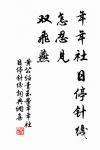 年年社日停针线
怎忍见
双飞燕
黄公绍青玉案年年社
日停针线词典网集